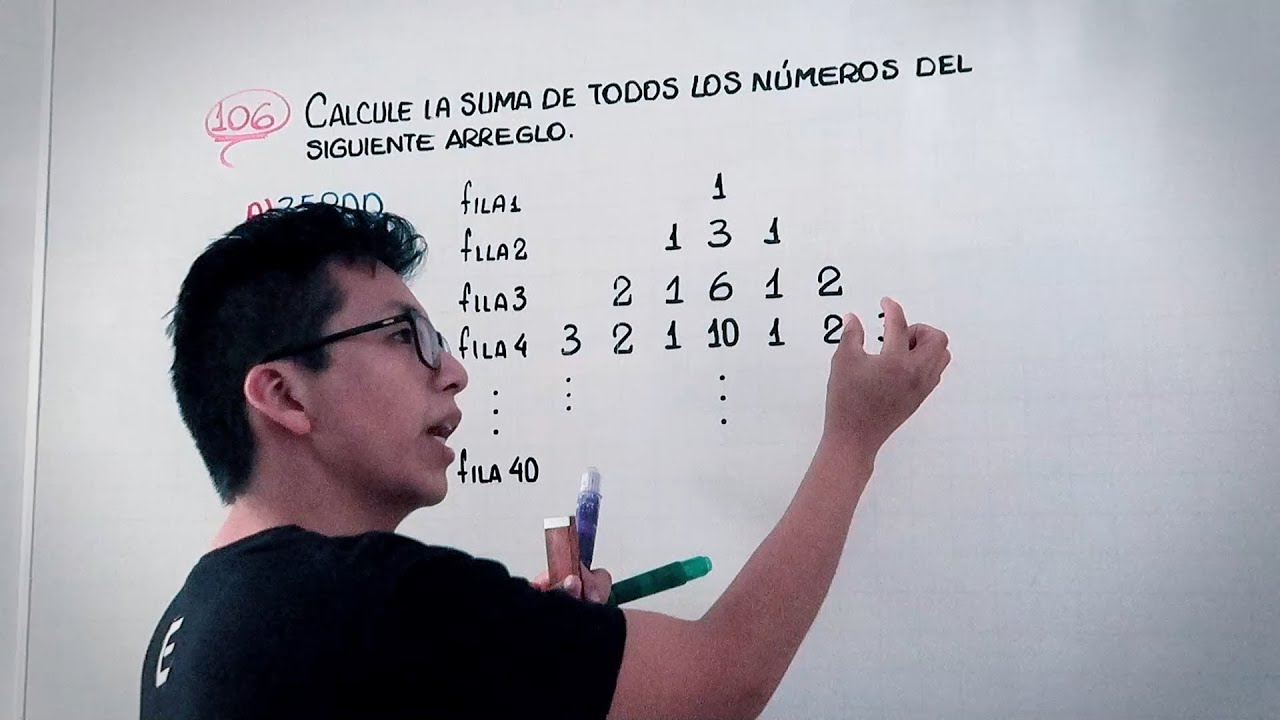 106 CALCULE LA SUMA DE TODOS LOS NÚMEROS DEL
SIGUIENTE ARREGLO.
fILA 1 1
fILA 2 1 3 1
fILA 3 2 1 6 1 2
fILA 4 3 2 1 10 1 2
fILA 40
E